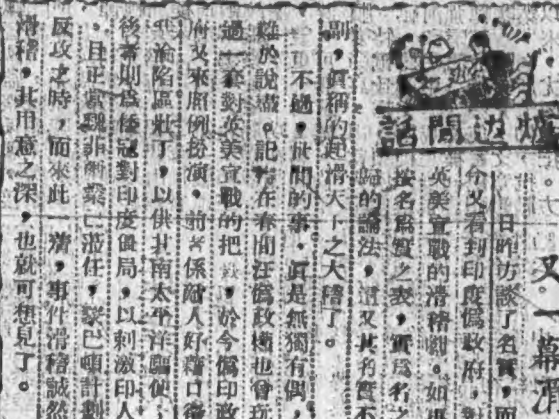 爐边閒話
又一幕滑
日昨方談了名實，
今又看到印度僞政府，
英美宣戰的滑稽劇。如
按名爲實之表，實爲名
歸的論法，這又其名實不
副，眞稱的起滑天下之大稽了。
不過，世間的事，眞是無獨有偶，
難於說盡。記得在春間汪僞政權也曾玩
過一套對英美宣戰的把戲，於今僞印政
府又來照例扮演，前者係敵人好藉口徵
淪陷區壯丁，以供其南太平洋驅使，
後者則爲倭寇對印度僞局，以刺激印人
。且正當魏菲爾蒙巴滿任，蒙巴頓計劃
反攻之時，而來此一着，事件滑稽誠然
滑稽，其用意之深，也就可想見了。